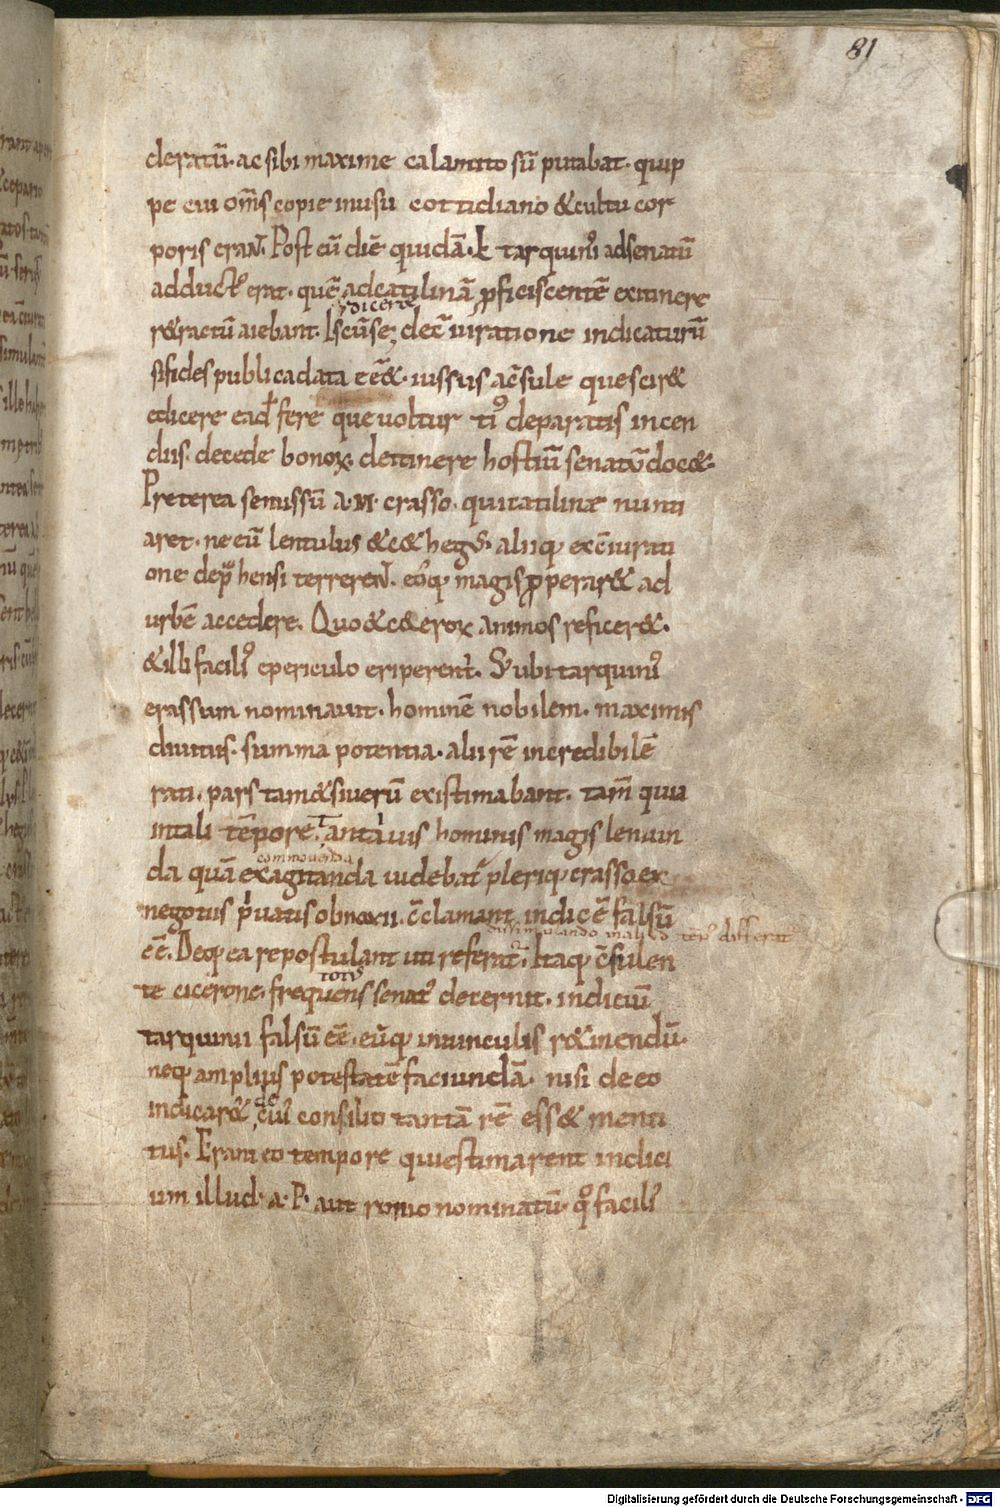 81
deratū. ac sibi maxime calamito sū putabat. quip
pe cui om̄s copie in usu cottidiano & cultu cor
poris eraN̄. Post eū diē quidā. L tarquini᾽ ad senatū
adduct᾽ erat. quē ad catilinā p̱ficiscentē ex itinere
r&ractū aiebant. Is cū se dec̄iuratione indicaturū
dicer&
si fides publica data eē&. iussus ac̄sule que scir&
edicere eadē fere que uoltur ti᾽ de paratis incen
diis. de cede bonoꝝ. de itinere hostiū senatū doc&.
Preterea se missū a. M. crasso. qui catilinae nunti
aret. ne eū lentulus & c&heg᾽. aliiq; ex c̄iurati
one dep̄hensi terrereN̄. eoq; magis p̱perar& ad
urbē accedere. Quo & c&eroꝝ animos reficer&.
& illi facili᾽ e periculo eriperent᾽. S; ubi tarquini᾽
crassum nominauit. hominē nobilem. maximis
diuitiis. summa potentia. alii rē incredibilē
rati. pars tam&si uerū existimabant. tam̄ quia
in tali tēpore. tanta uis hominis magis leniun
da quā exagitanda uidebat᾽ pleriq; crasso ex
commouenda
negotiis p̄uatis obnoxii. c̄clamant indicē falsū
eē. Deq; ea re postulant uti referat᾽. Itaq; c̄sulen
te cicerone. frequens senat᾽ decernit. indiciū
tot᾽
tarquinii falsū eē. eūq; in uinculis r&inendū.
neq; amplius potestatē faciundā. nisi de eo
indicar&. cui᾽ consilio tantā rē ess& menti
de
tus. Erant eo tempore qui estimarent indici
um illud. a. P. autronio nominatū. q᾽ facili᾽
Digitalisierung gefördert durch die Deutsche Forschungsgemeinschaft - DFG